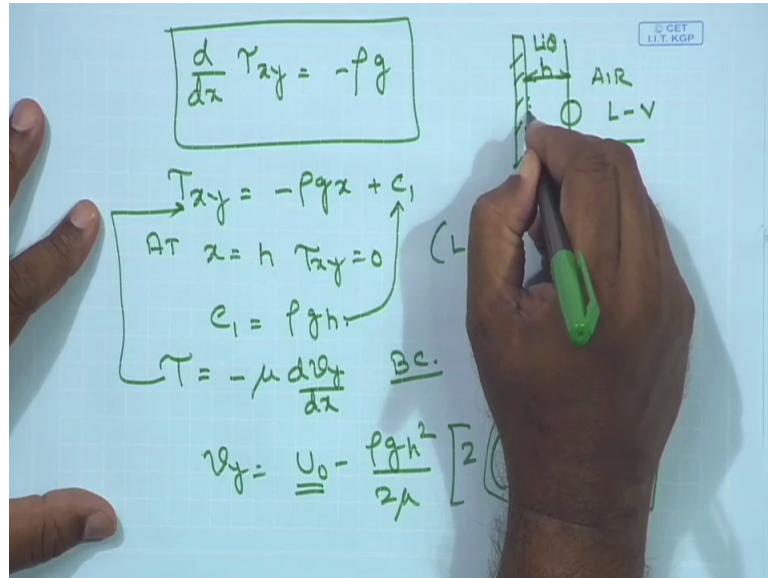 © CET
I.I.T. KGP
d/dx τxy = -ρg
LiQ
h
AIR
L-V
τxy = -ρgx + C₁
AT x = h τxy = 0
(L
C₁ = ρgh
τ = -μ dvy/dx BC.
vy = U₀ - ρgh²/2μ [2 (